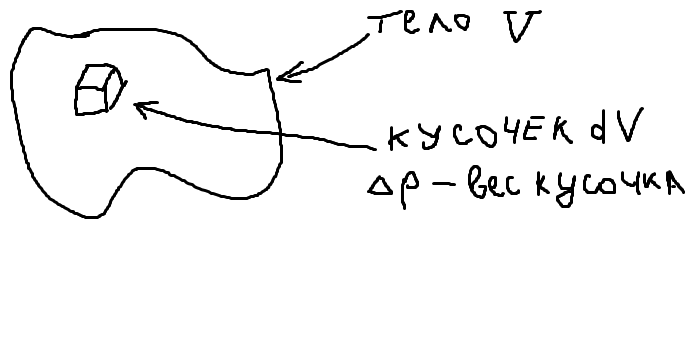 тело V
кусочек dV
Δp - вес кусочка